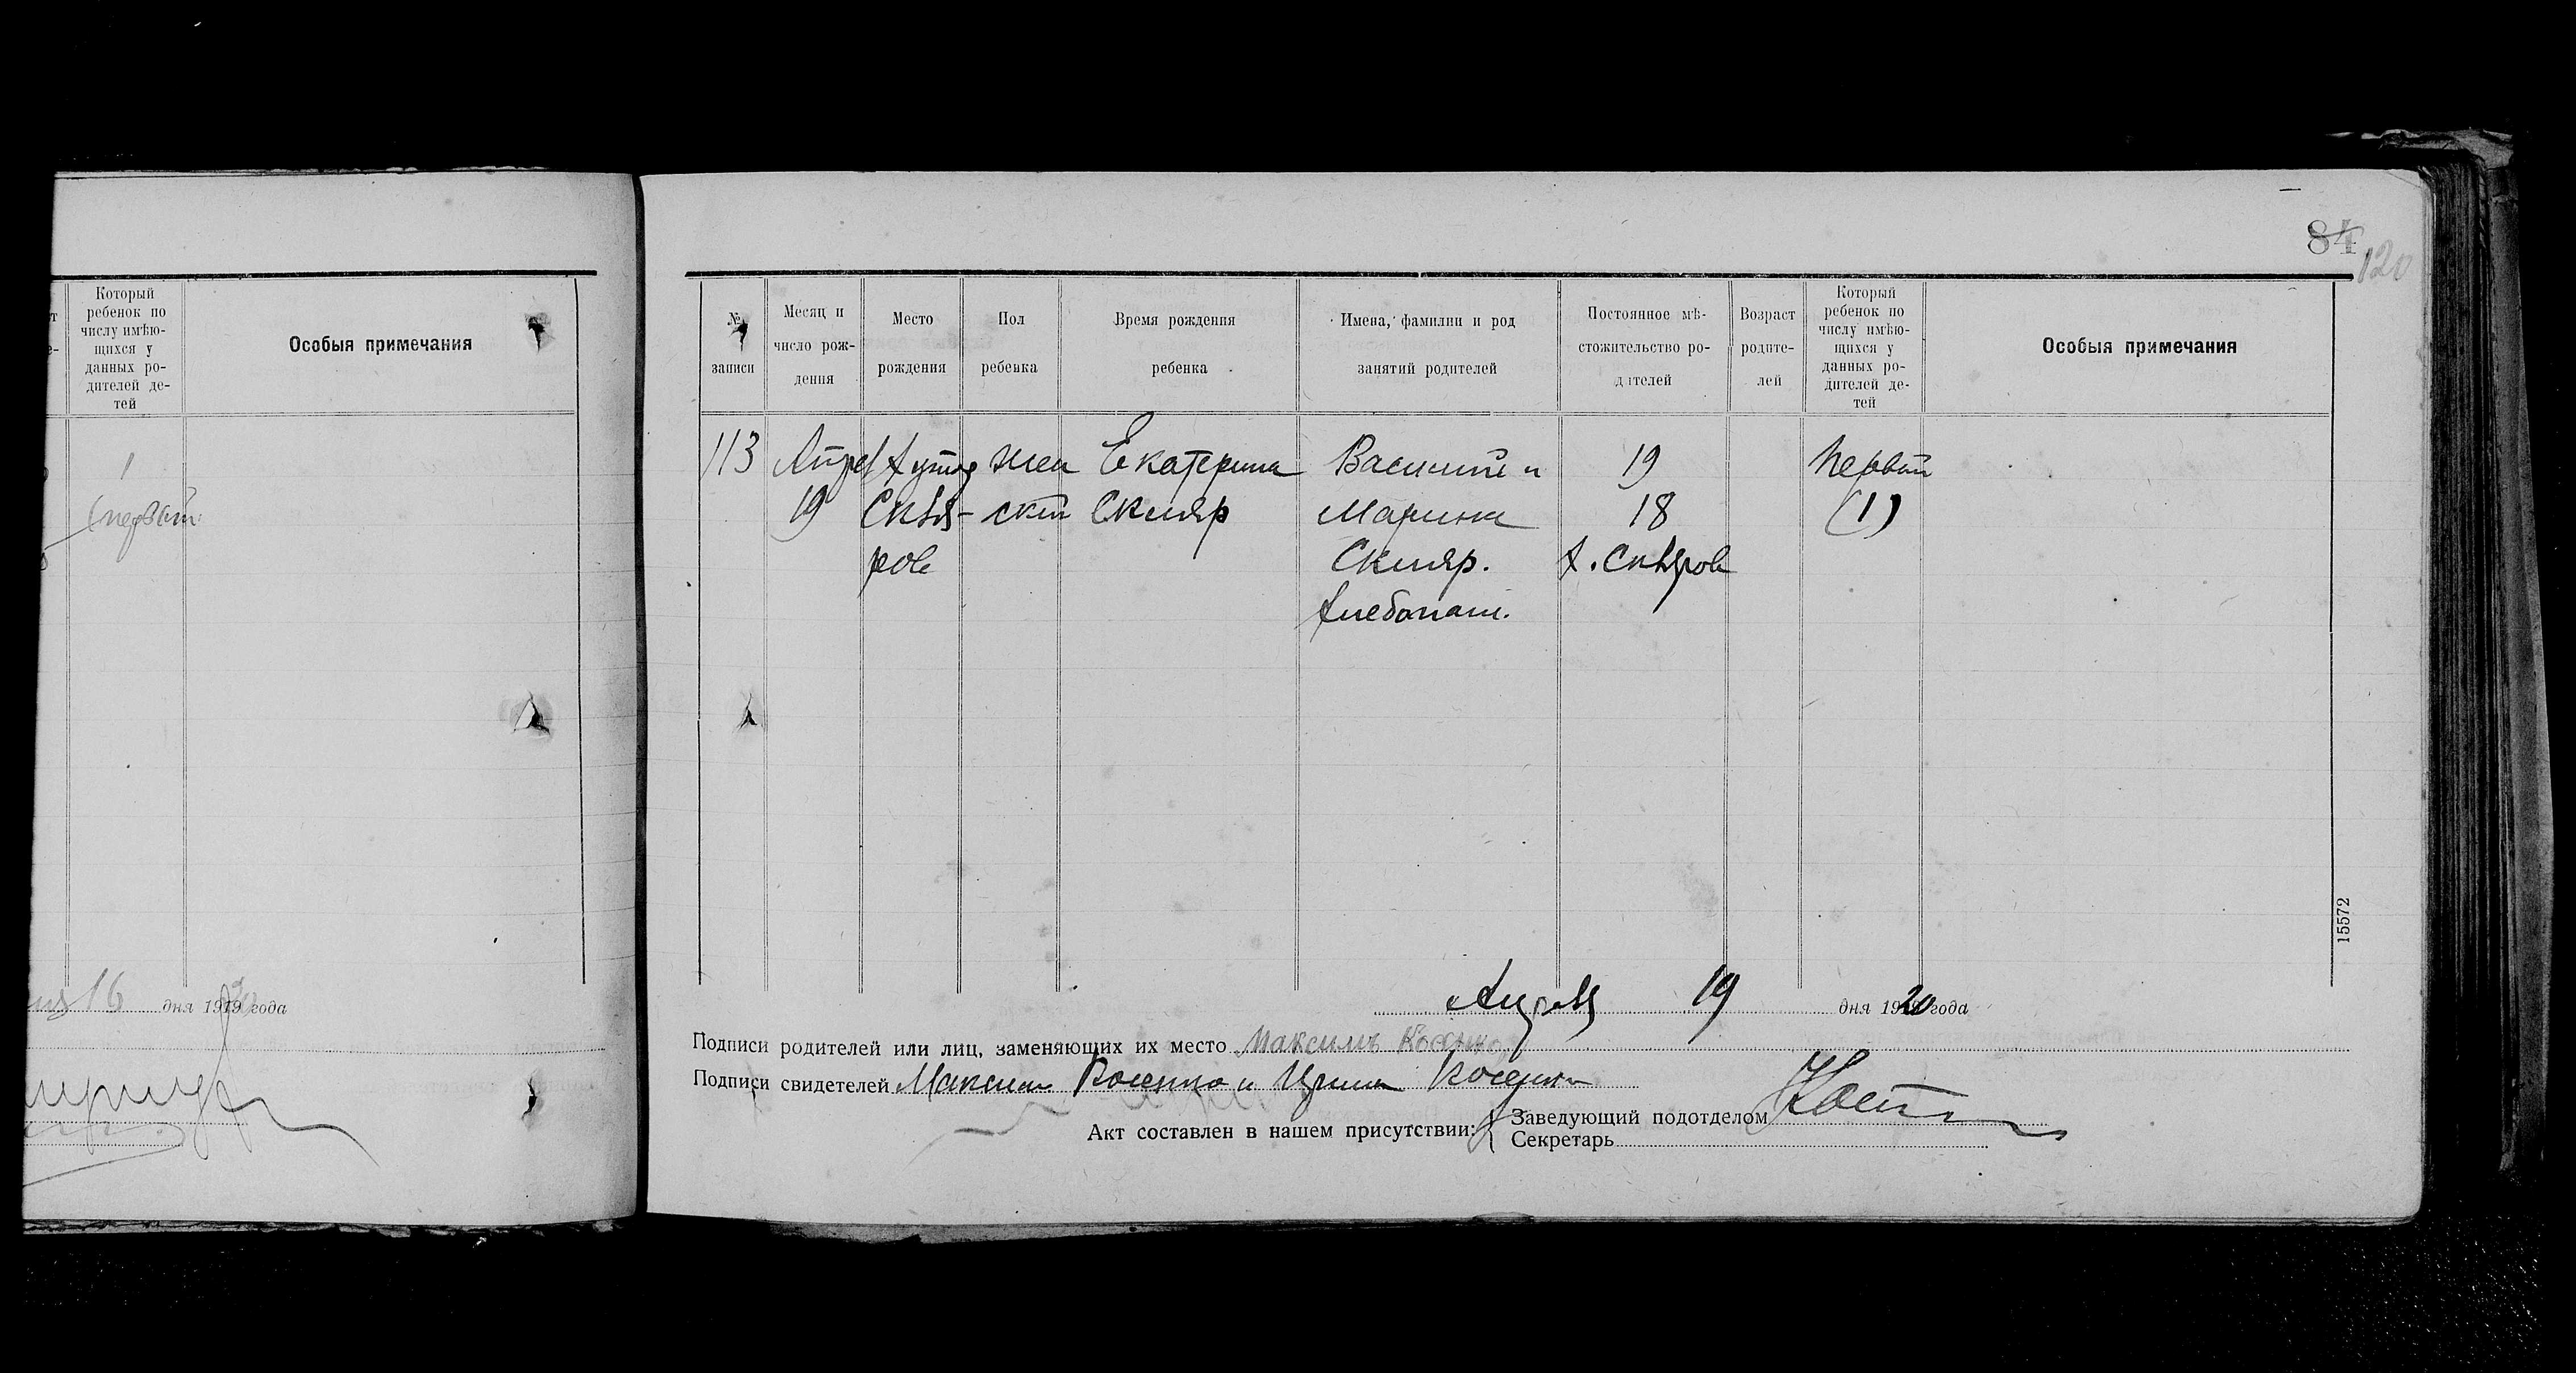 Который
ребенок по
числу имѣю-
щихся у
данных ро-
дителей де-
тей
Особыя примечания
1
(первый
16 дня 1919 года
84
120
№
записи
Месяц и
число рож-
дения
Место
рождения
Пол
ребенка
Время рождения
ребенка
Имена, фамилии и род
занятий родителей
Постоянное мѣ-
стожительство ро-
дителей
Возраст
родите-
лей
Который
ребенок по
числу имѣю-
щихся у
данных ро-
дителей де-
тей
Особыя примечания
113 Апрел Хутор жен Екатерина Василий и 19 первый
19 Скля- ский Скляр Марина 18 (1)
ров Скляр. х. Скляров
хлебопаш.
Апреля 19 дня 1920 года
Подписи родителей или лиц, заменяющих их место Максимъ Косенко
Подписи свидетелей Максим Косенко и Ирина Косенко
Акт составлен в нашем присутствии:
Заведующий подотделом
Секретарь
15572